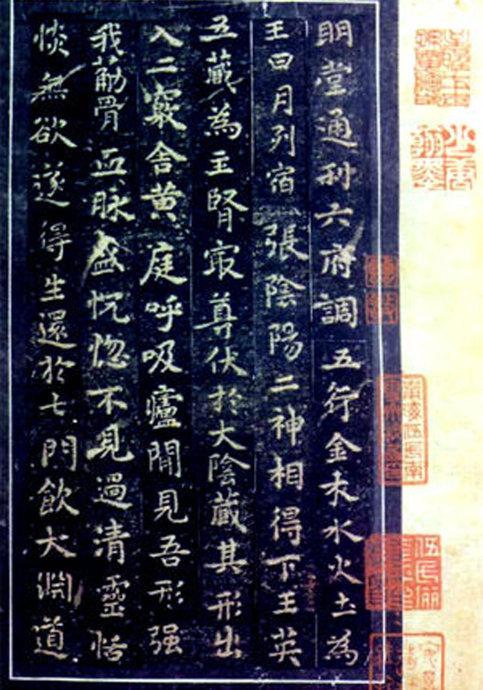 眀堂通利六府調五行金木水火土為
王日月列宿張陰陽二神相得下王英
五藏為主腎冣尊伏於大陰藏其形出
入二竅舍黄庭呼吸廬間見吾形强
我筋骨血脉盛怳惚不見過清靈恬
惔無欲遂得生還於七門飲大淵道